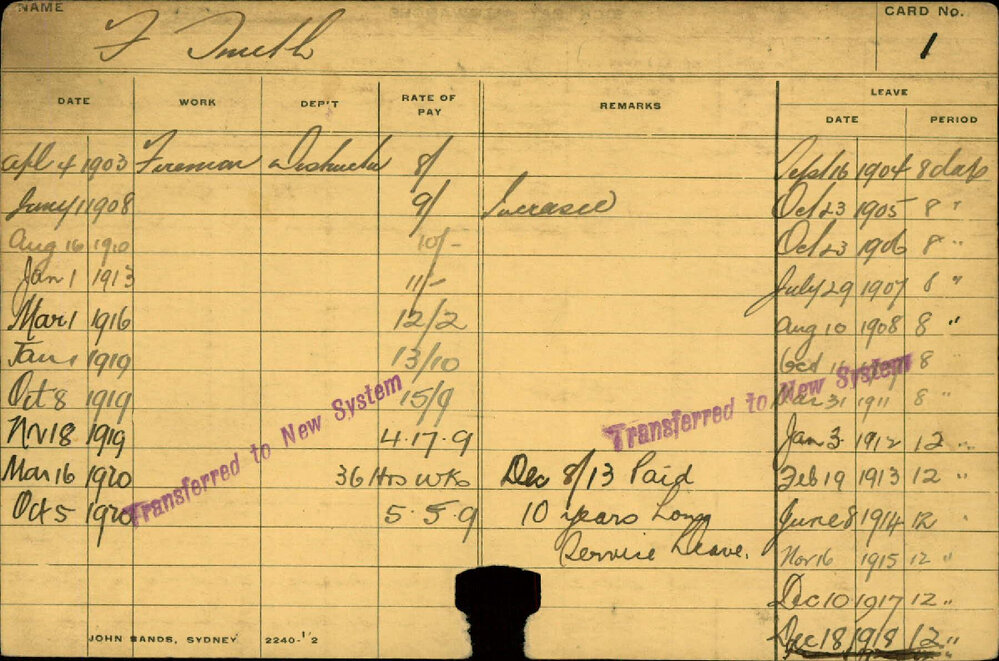 NAME F Smith CARD No. 1
DATE WORK DEP'T RATE OF PAY REMARKS LEAVE
DATE PERIOD
Apl 4 1903 Fireman Destructor 8/ Sept 16 1904 8 days
1908 9/ Increase Oct 23 1905 8 "
Aug 16 1910 10/- Oct 23 1906 8 "
Jan 1 1913 11/- July 29 1907 8 "
Mar 1 1916 12/2 Aug 10 1908 8 "
Jan 1 1919 13/10 Oct 8
Oct 8 1919 15/9 Mar 31 1911 8 "
Nv 18 1919 4.17.9 Jan 3 1912 12 "
Mar 16 1920 36 Hrs Wks Dec 8/13 Paid Feb 19 1913 12 "
Oct 5 1920 5.5.9 10 years Long June 8 1914 12 "
Service Leave. Nov 16 1915 12 "
Dec 10 1917 12 "
Dec 18 1918 12 "
Transferred to New System
Transferred to New System
JOHN SANDS, SYDNEY 2240-1/2